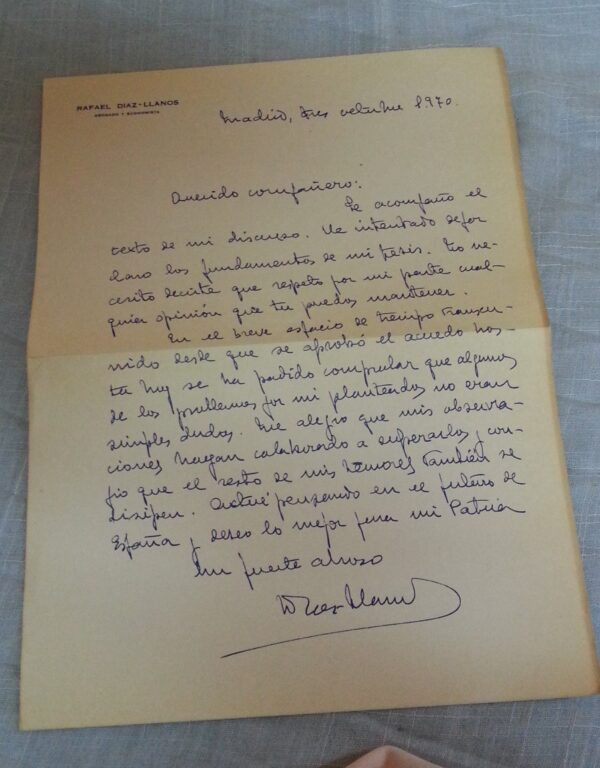 RAFAEL DIAZ-LLANOS
ABOGADO Y ECONOMISTA
Madrid, tres octubre 1.970.
Querido compañero:
Te acompaño el
texto de mi discurso. He intentado dejar
claro los fundamentos de mi tesis. No ne-
cesito decirte que respeto por mi parte cual-
quier opinión que tu puedas mantener.
En el breve espacio de tiempo transcu-
rrido desde que se aprobó el acuerdo has-
ta hoy se ha podido comprobar que algunos
de los problemas por mi planteados no eran
simples dudas. Me alegro que mis observa-
ciones hayan colaborado a superarlos y con-
fio que el resto de mis temores también se
disipen. Actué pensando en el futuro de
España y deseo lo mejor para mi Patria
Un fuerte abrazo
Diaz-Llanos